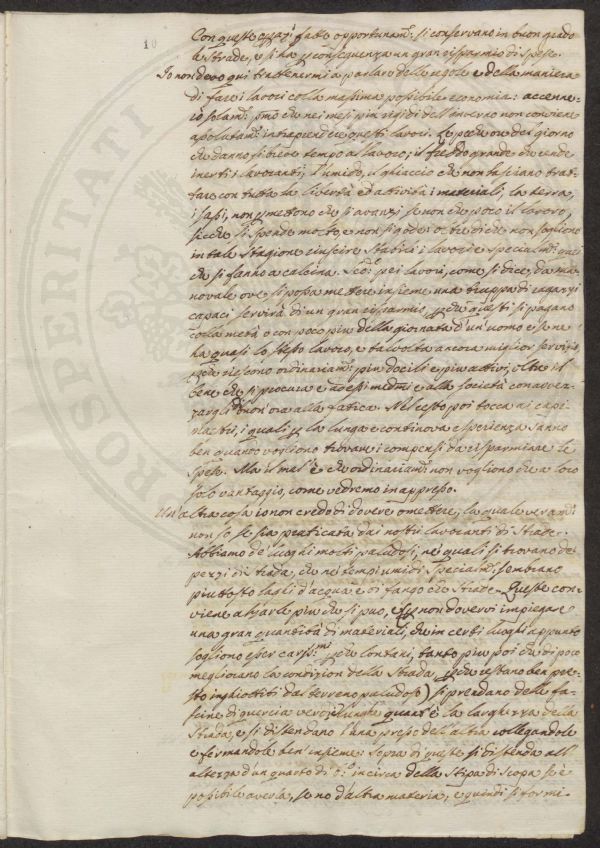 10
Con queste guaz.i fatte opportunam.e si conservano in buon grado
le Strade, e si ha p conseguenza un gran risparmio di spese.
Io non devo qui trattenermi a parlare delle regole e della maniera
di fare i lavori colla massima possibile economia: accenne-
rò solam.e p.mo che nei mesi più rigidi dell'inverno non conviene
assolutam.e intraprendere questi lavori. Le poche ore del giorno
che danno sì breve tempo al lavoro; il freddo grande che rende
inerti i lavoranti; l'umido, il ghiaccio che non lasciano trat-
tare con tutta la libertà ed attività i materiali, la terra,
i sassi, non permettono che si avanzi se non che poco il lavoro,
sicché si spende molto, e non si gode: oltre di che non sogliono
in tale stagione riuscire stabili i lavori e specialm.e quei
che si fanno a calcina. Sec.o pei lavori, come si dice, da ma-
novale ove si possa mettere insieme una truppa di ragazzi
capaci servirà di un gran risparmio, perché questi si pagano
colla metà o con poco più della giornata d'un uomo e se ne
ha quasi lo stesso lavoro, e talvolta ancora miglior servizio,
perché riescono ordinariam.e più docili e più attivi, oltre il
bene che si procura e ad essi medmi e alla società con avvez-
zargli di buon'ora alla fatica. Nel resto poi tocca ai capi
mastri, i quali p la lunga e continova esperienza sanno
ben quando vogliono trovare i compensi da risparmiare le
spese. Ma il mal' è che ordinariam.e non vogliono che a loro
solo vantaggio, come vedremo in appresso.
Un'altra cosa io non credo di dovere omettere, la quale veram.e
non so se sia praticata dai nostri lavoranti di Strade.
Abbiamo de' luoghi molto paludosi, nei quali si trovano de'
pezzi di strada, che nei tempi umidi specialm.e sembrano
piuttosto laghi d'acqua e di fango che strade. Queste con-
viene alzarle più che si può, e p non dovervi impiegare
una gran quantità di materiali, che in certi luoghi appunto
sogliono esser cariss.mi perché lontani, tanto più poi che di poco
megliorano la condizion della Strada perché restano ben pre-
sto inghiottiti dal terreno paludoso) si prendano delle fa-
scine di quercia verdi lunghe quant'è la larghezza della
Strada, e si distendano l'una presso dell'altra collegandole
e fermandole ben insieme: sopra di queste si distenda all'
altezza d'un quarto di b.o incirca della Stipa di scopa se è
possibile averla, se no d'altra materia, e quindi si formi